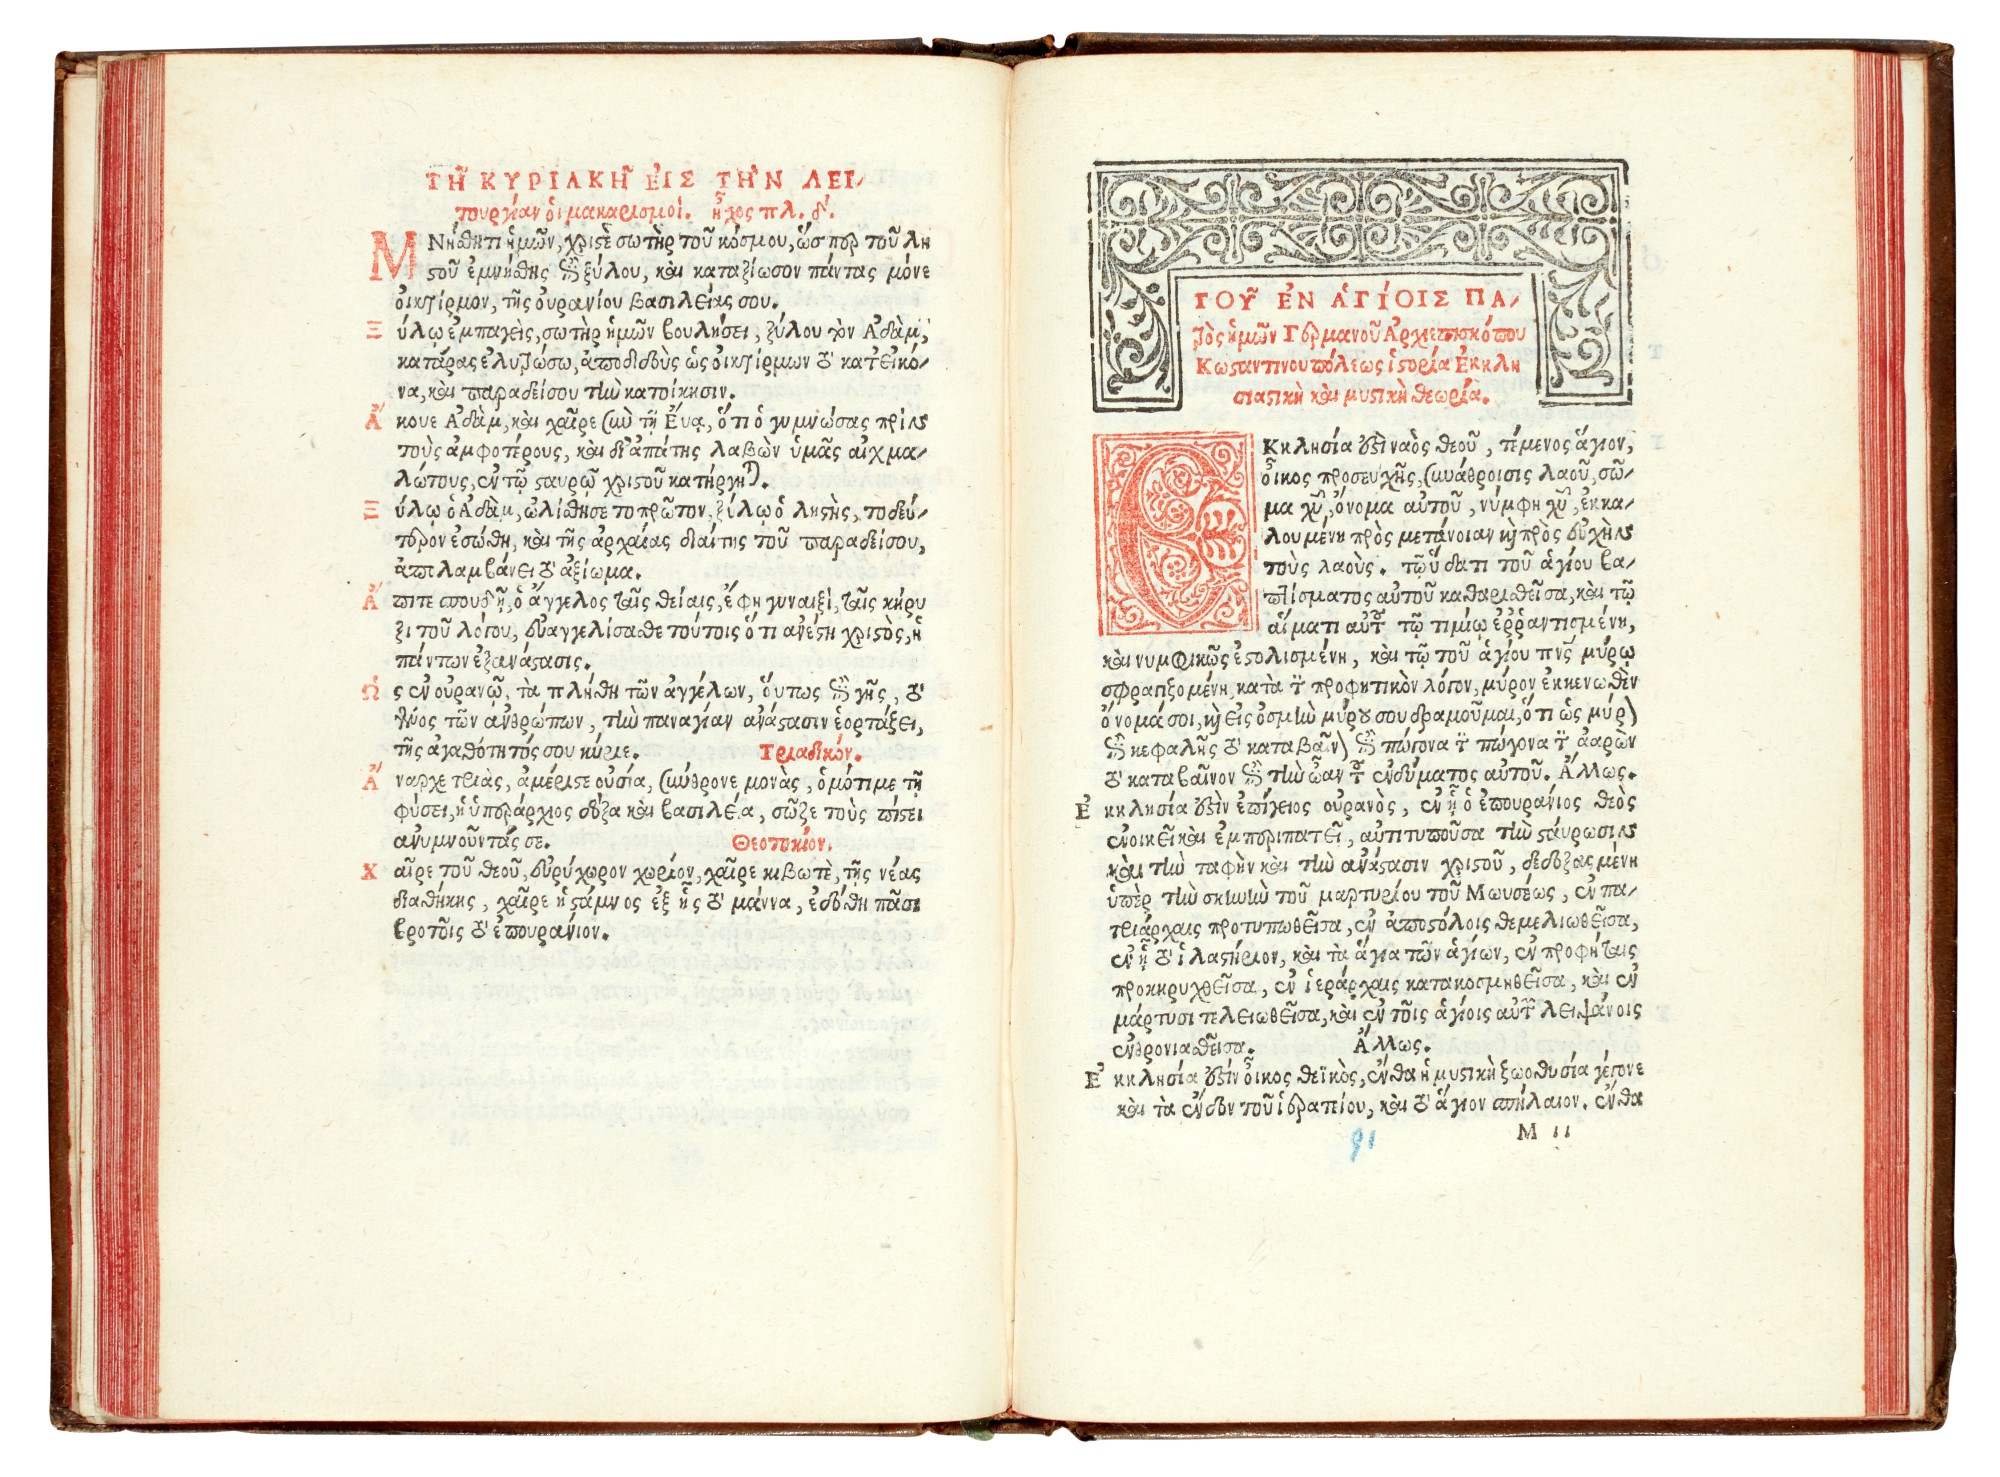 ΤΗ͂ ΚΥΡΙΑΚΗ͂ ΕἸΣ ΤῊΝ ΛΕΙ/
τουργίαν ὁι μακαρισμοί. ἦχος πλ. δ'.
ΜΝήθητι ἡμῶν, χριϛὲ σωτὴρ τοῦ κόσμου, ὥσπερ τοῦ λη
ϛοῦ ἐμνήθης ἐπὶ ξύλου, καὶ καταξίωσον πάντας μόνε
ὀικτίρμον, τῆς ὀυρανίου βασιλείας σου.
Ξύλῳ ἐμπαγεὶς, σωτὴρ ἡμῶν βουλήσει, ξύλου τὸν Ἀδὰμ,
κατάρας ἐλυτρώσω, ἀποδιδοὺς ὡς ὀικτίρμων τὸ κατ' ἐικό/
να, καὶ παραδείσου τὴν κατοίκησιν.
Ἄκουε Ἀδὰμ, καὶ χαῖρε σὺν τῇ Ἔυᾳ, ὅτι ὁ γυμνώσας πρὶν
τοὺς ἀμφοτέρους, καὶ δι' ἀπάτης λαβὼν ὑμᾶς ἀιχμα/
λώτους, ἐν τῷ ϛαυρῷ χριϛοῦ κατήργηται.
Ξύλῳ ὁ Ἀδὰμ, ὠλίσθησε το πρῶτον, ξύλῳ ὁ ληϛὴς, το δεύ/
τερον ἐσώθη, καὶ τῆς ἀρχαίας διαίτης τοῦ παραδείσου,
ἀπολαμβάνει τὸ ἀξίωμα.
Ἄπιτε σπουδῇ, ὁ ἄγγελος ταῖς θείαις, ἔφη γυναιξὶ, ταῖς κήρυ
ξι τοῦ λόγου, ἐυαγγελίσασθε τούτοις ὅτι ἀνέϛη χριϛὸς, ἡ
πάντων ἐξανάϛασις.
Ὡϛ ἐν ὀυρανῷ, τὰ πλήθη τῶν ἀγγέλων, ὅυτως ἐπὶ γῆς, τὸ
γένος τῶν ἀνθρώπων, τὴν παναγίαν ἀνάϛασιν ἑορτάζει,
τῆς ἀγαθότητός σου κύριε. Τριαδικόν.
Ἄναρχε τριὰς, ἀμέριϛε ὀυσία, σύνθρονε μονὰς, ὁμότιμε τῇ
φύσει, ἡ ὑπεράρχιος δόξα καὶ βασιλεία, σῶζε τοὺς πίϛει
ἀνυμνοῦντάς σε. Θεοτοκίον.
Χαῖρε τοῦ θεοῦ, ἐυρύχωρον χωρίον, χαῖρε κιβωτὲ, τῆς νέας
διαθήκης, χαῖρε ἡ ϛάμνος ἐξ ἧς τὸ μάννα, ἐδόθη πᾶσι
βροτοῖς τὸ ἐπουράνιον.
ΤΟΥ͂ ἘΝ ἉΓΊΟΙΣ ΠΑ/
τρὸς ἡμῶν Γερμανοῦ Ἀρχιεπισκόπου
Κωϛαντινουπόλεως ἱϛορία Ἐκκλη
σιαϛικὴ καὶ μυϛικὴ θεωρία.
ΕΚκλησία ἐϛὶ ναὸς θεοῦ, τέμενος ἅγιον,
ὄικος προσευχῆς, συνάθροισις λαοῦ, σῶ/
μα χῦ, ὄνομα αὐτοῦ, νύμφη χῦ, ἐκκα/
λουμένη πρὸς μετάνοιαν κὶ πρὸς ἐυχὴν
τοὺς λαοὺς. τῷ ὕδατι τοῦ ἁγίου βα/
πτίσματος αὐτοῦ καθαρισθεῖσα, καὶ τῷ
ἅιματι αὐτοῦ τῷ τιμίῳ ἐῤῥαντισμένη,
καὶ νυμφικῶς ἐϛολισμένη, καὶ τῷ τοῦ ἁγίου πνς μύρῳ
σφραγιζομένη, κατὰ τὸν προφητικὸν λόγον, μύρον ἐκκενωθὲν
ὄνομά σοι, κὶ εἰς ὀσμὴν μύρου σου δραμοῦμαι, ὅτι ὡς μύρον
ἐπὶ κεφαλῆς τὸ καταβαῖνον ἐπὶ πώγωνα τὸν πώγονα τοῦ ἀαρὼν
τὸ καταβαῖνον ἐπὶ τὴν ὤαν τοῦ ἐνδύματος αὐτοῦ. Ἄλλως.
Ἐκκλησία ἐϛὶν ἐπίγειος οὐρανὸς, ἐν ᾗ ὁ ἐπουράνιος θεὸς
ἐνοικεῖ καὶ ἐμπεριπατεῖ, αὐτιτυποῦσα τὴν ϛαύρωσιν
καὶ τὴν ταφὴν καὶ τὴν ἀνάϛασιν χριϛοῦ, δεδοξασμένη
ὑπὲρ τὴν σκηνὴν τοῦ μαρτυρίου τοῦ Μωυσέως, ἐν πα/
τριάρχαις προτυπωθεῖσα, ἐν ἀποϛόλοις θεμελιωθεῖσα,
ἐν ᾗ τὸ ἱλαϛήριον, καὶ τὰ ἅγια τῶν ἁγίων, ἐν προφήταις
προκηρυχθεῖσα, ἐν ἱεράρχαις κατακοσμηθεῖσα, καὶ ἐν
μάρτυσι τελειωθεῖσα, καὶ ἐν τοῖς ἁγίοις αὐτῶν λειψάνοις
ἐνθρονιασθεῖσα. Ἄλλως.
Ἐκκλησία ἐϛὶν ὄικος θεϊκὸς, ἔνθα ἡ μυϛικὴ ζωοθυσία γέγονε
καὶ τὰ ἔνδον τοῦ ἱερατείου, καὶ τὸ ἅγιον σπήλαιον. ἔνθα
M ii
91